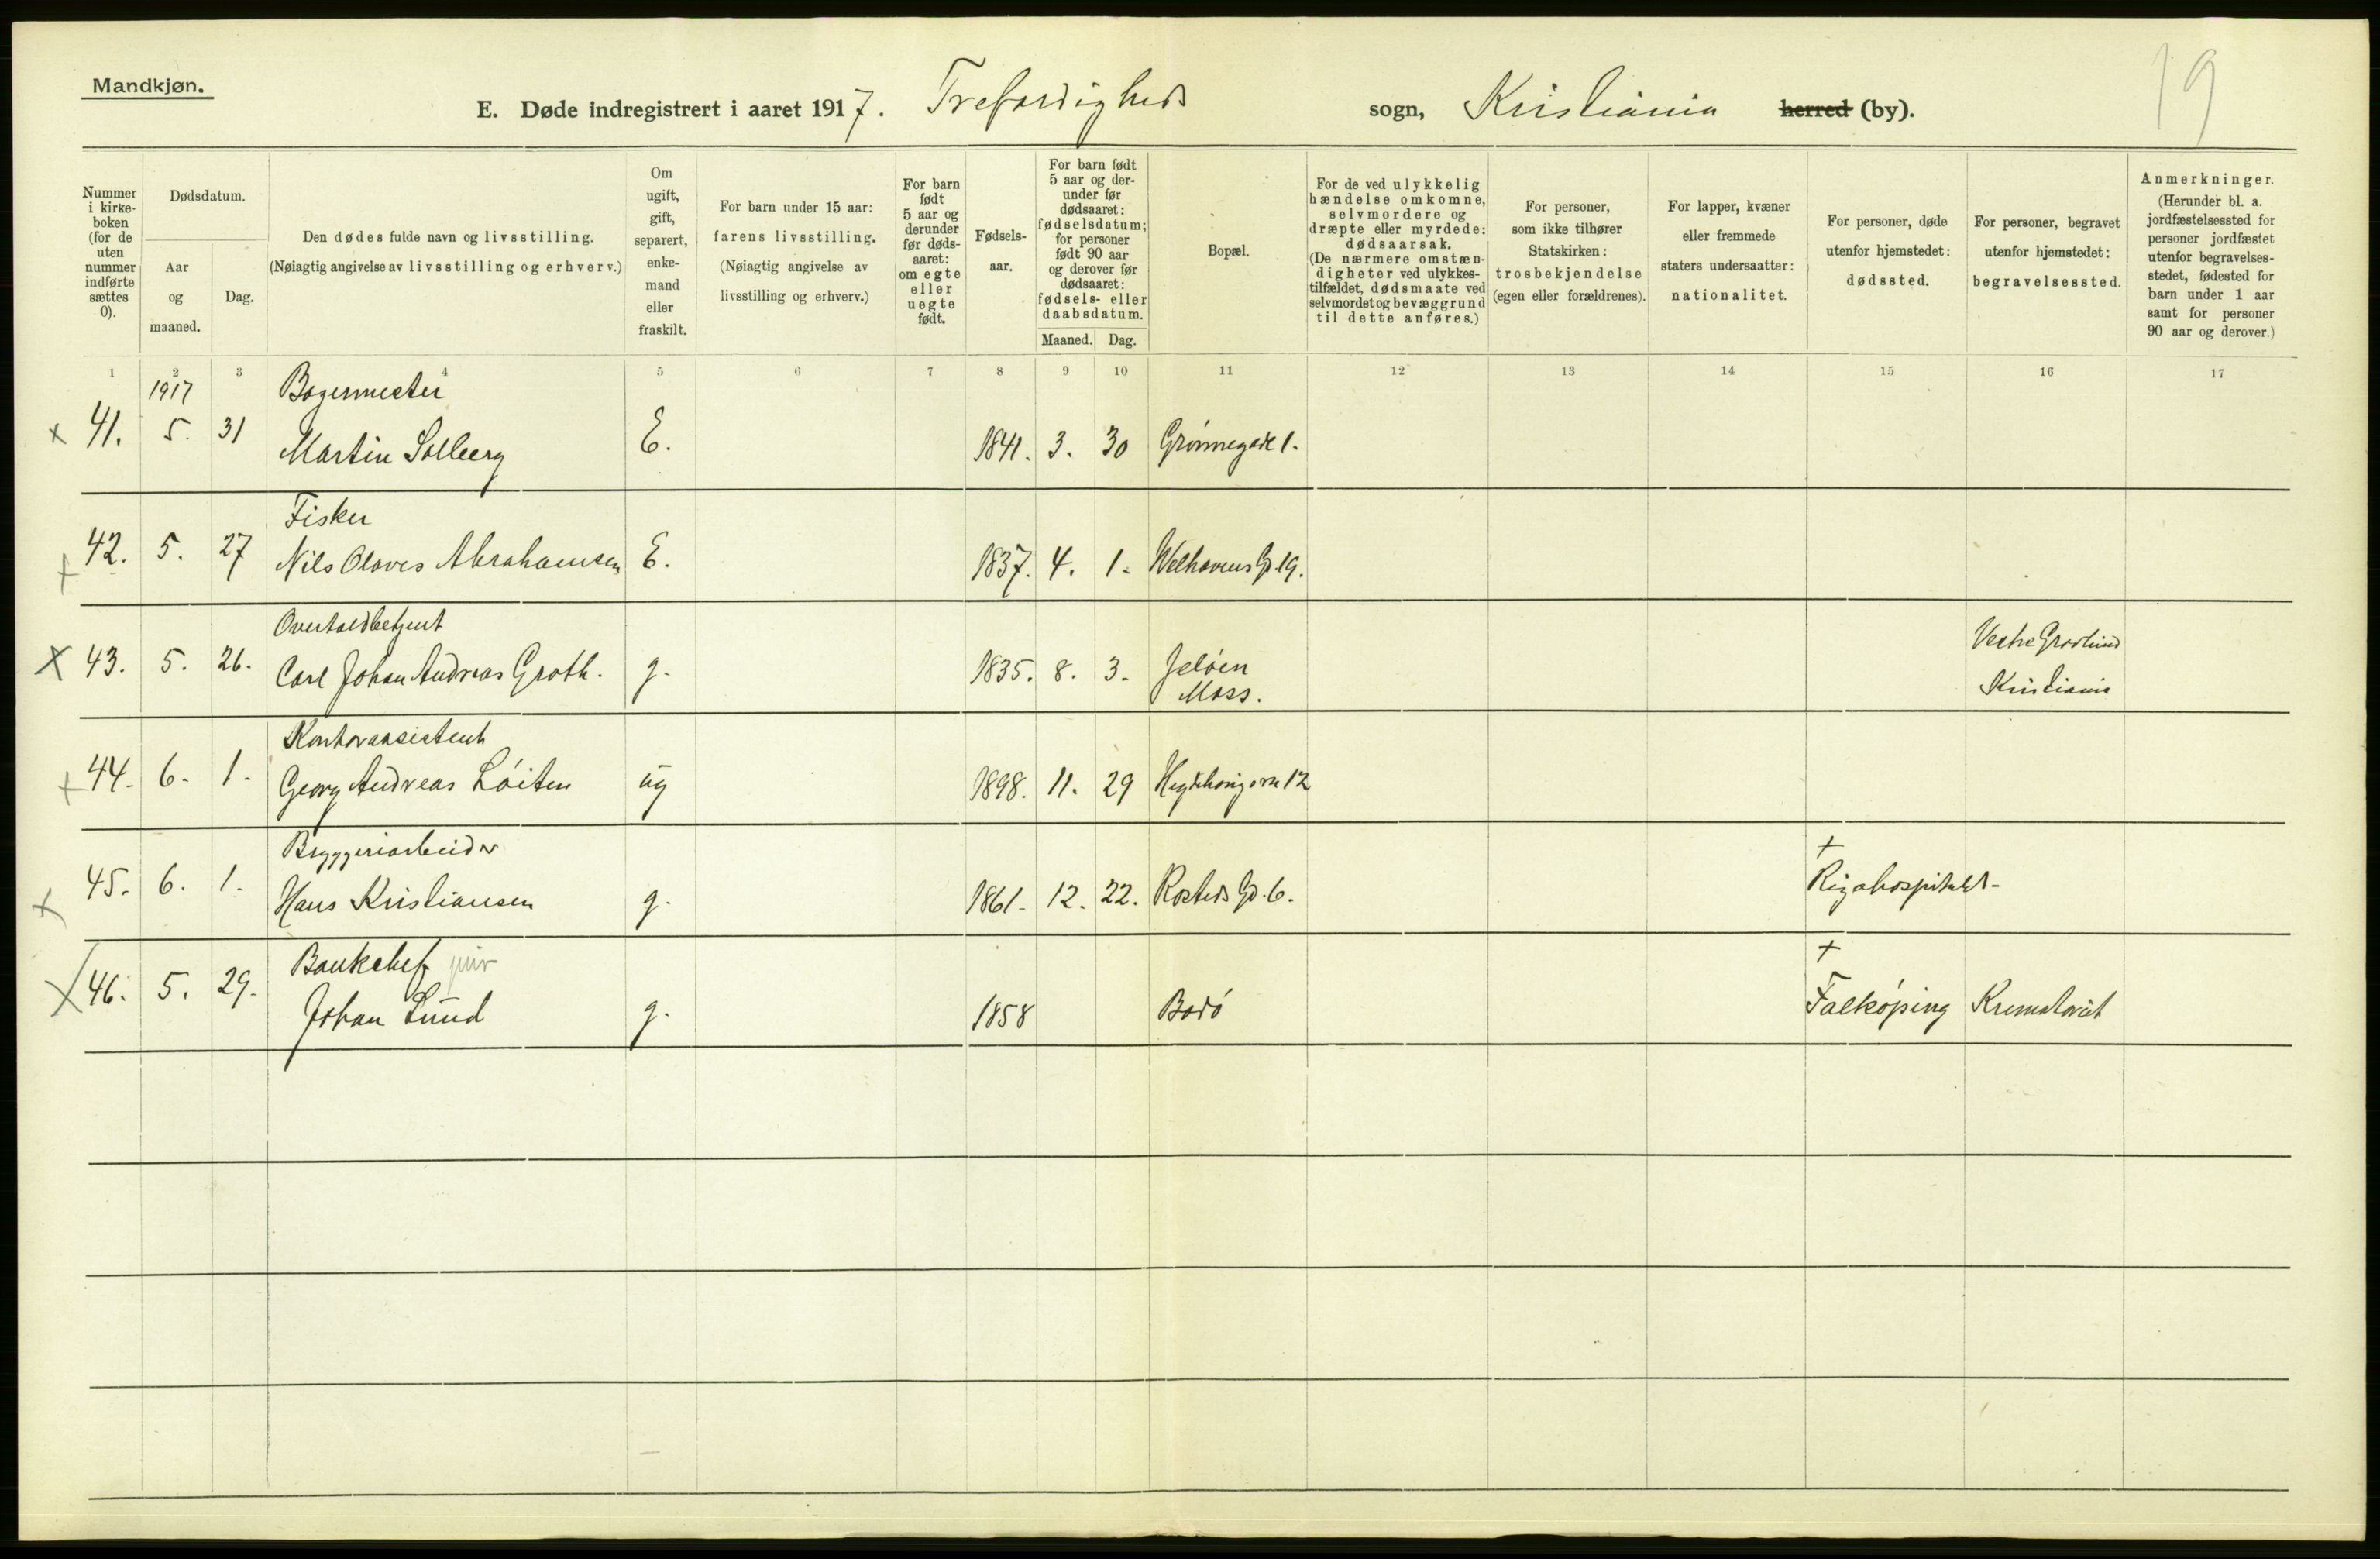 Mandkjøn.
19
E. Døde indregistrert i aaret 1917. Trefoldigheds sogn, Kristiania herred (by).
Nummer i kirke-boken (for de uten nummer indførte sættes 0).
Dødsdatum.
Aar og maaned.
Dag.
Den dødes fulde navn og livsstilling.
(Nøiagtig angivelse av livsstilling og erhverv.)
Om ugift, gift, separert, enke-mand eller fraskilt.
For barn under 15 aar: farens livsstilling.
(Nøiagtig angivelse av livsstilling og erhverv.)
For barn født 5 aar og derunder før døds-aaret: om egte eller uegte født.
Fødsels-aar.
For barn født 5 aar og der-under før dødsaaret: fødselsdatum; for personer født 90 aar og derover før dødsaaret: fødsels- eller daabsdatum.
Maaned. Dag.
Bopæl.
For de ved ulykkelig hændelse omkomne, selvmordere og dræpte eller myrdede: dødsaarsak.
(De nærmere omstæn-digheter ved ulykkes-tilfældet, dødsmaate ved selvmordet og bevæggrund til dette anføres.)
For personer, som ikke tilhører Statskirken: trosbekjendelse (egen eller forældrenes).
For lapper, kvæner eller fremmede staters undersaatter: nationalitet.
For personer, døde utenfor hjemstedet: dødssted.
For personer, begravet utenfor hjemstedet: begravelsessted.
Anmerkninger.
(Herunder bl. a. jordfæstelsessted for personer jordfæstet utenfor begravelses-stedet, fødested for barn under 1 aar samt for personer 90 aar og derover.)
1 2 3 4 5 6 7 8 9 10 11 12 13 14 15 16 17
1917 Bagermester
x 41. 5. 31 Martin Solberg E. 1841. 3. 30 Grønnegade 1.
Fisker
+ 42. 5. 27 Nils Olaves Abrahamsen E. 1837. 4. 1. Welhavens Gd. 19.
Overtoldbetjent Vestre Gravlund
x 43. 5. 26. Carl Johan Andreas Groth. g. 1835. 8. 3. Jeløen Moss. Kristiania
Kontorassistent
+ 44. 6. 1. Georg Andreas Løiten ug 1898. 11. 29 12
Bryggeriarbeider +
x 45. 6. 1. Hans Kristiansen g. 1861. 12. 22. Rosteds Gd. 6. Rigshospitalet.
Bankchef priv +
x 46. 5. 29. Johan Lund g. 1858 Bodø Falköping Krematoriet